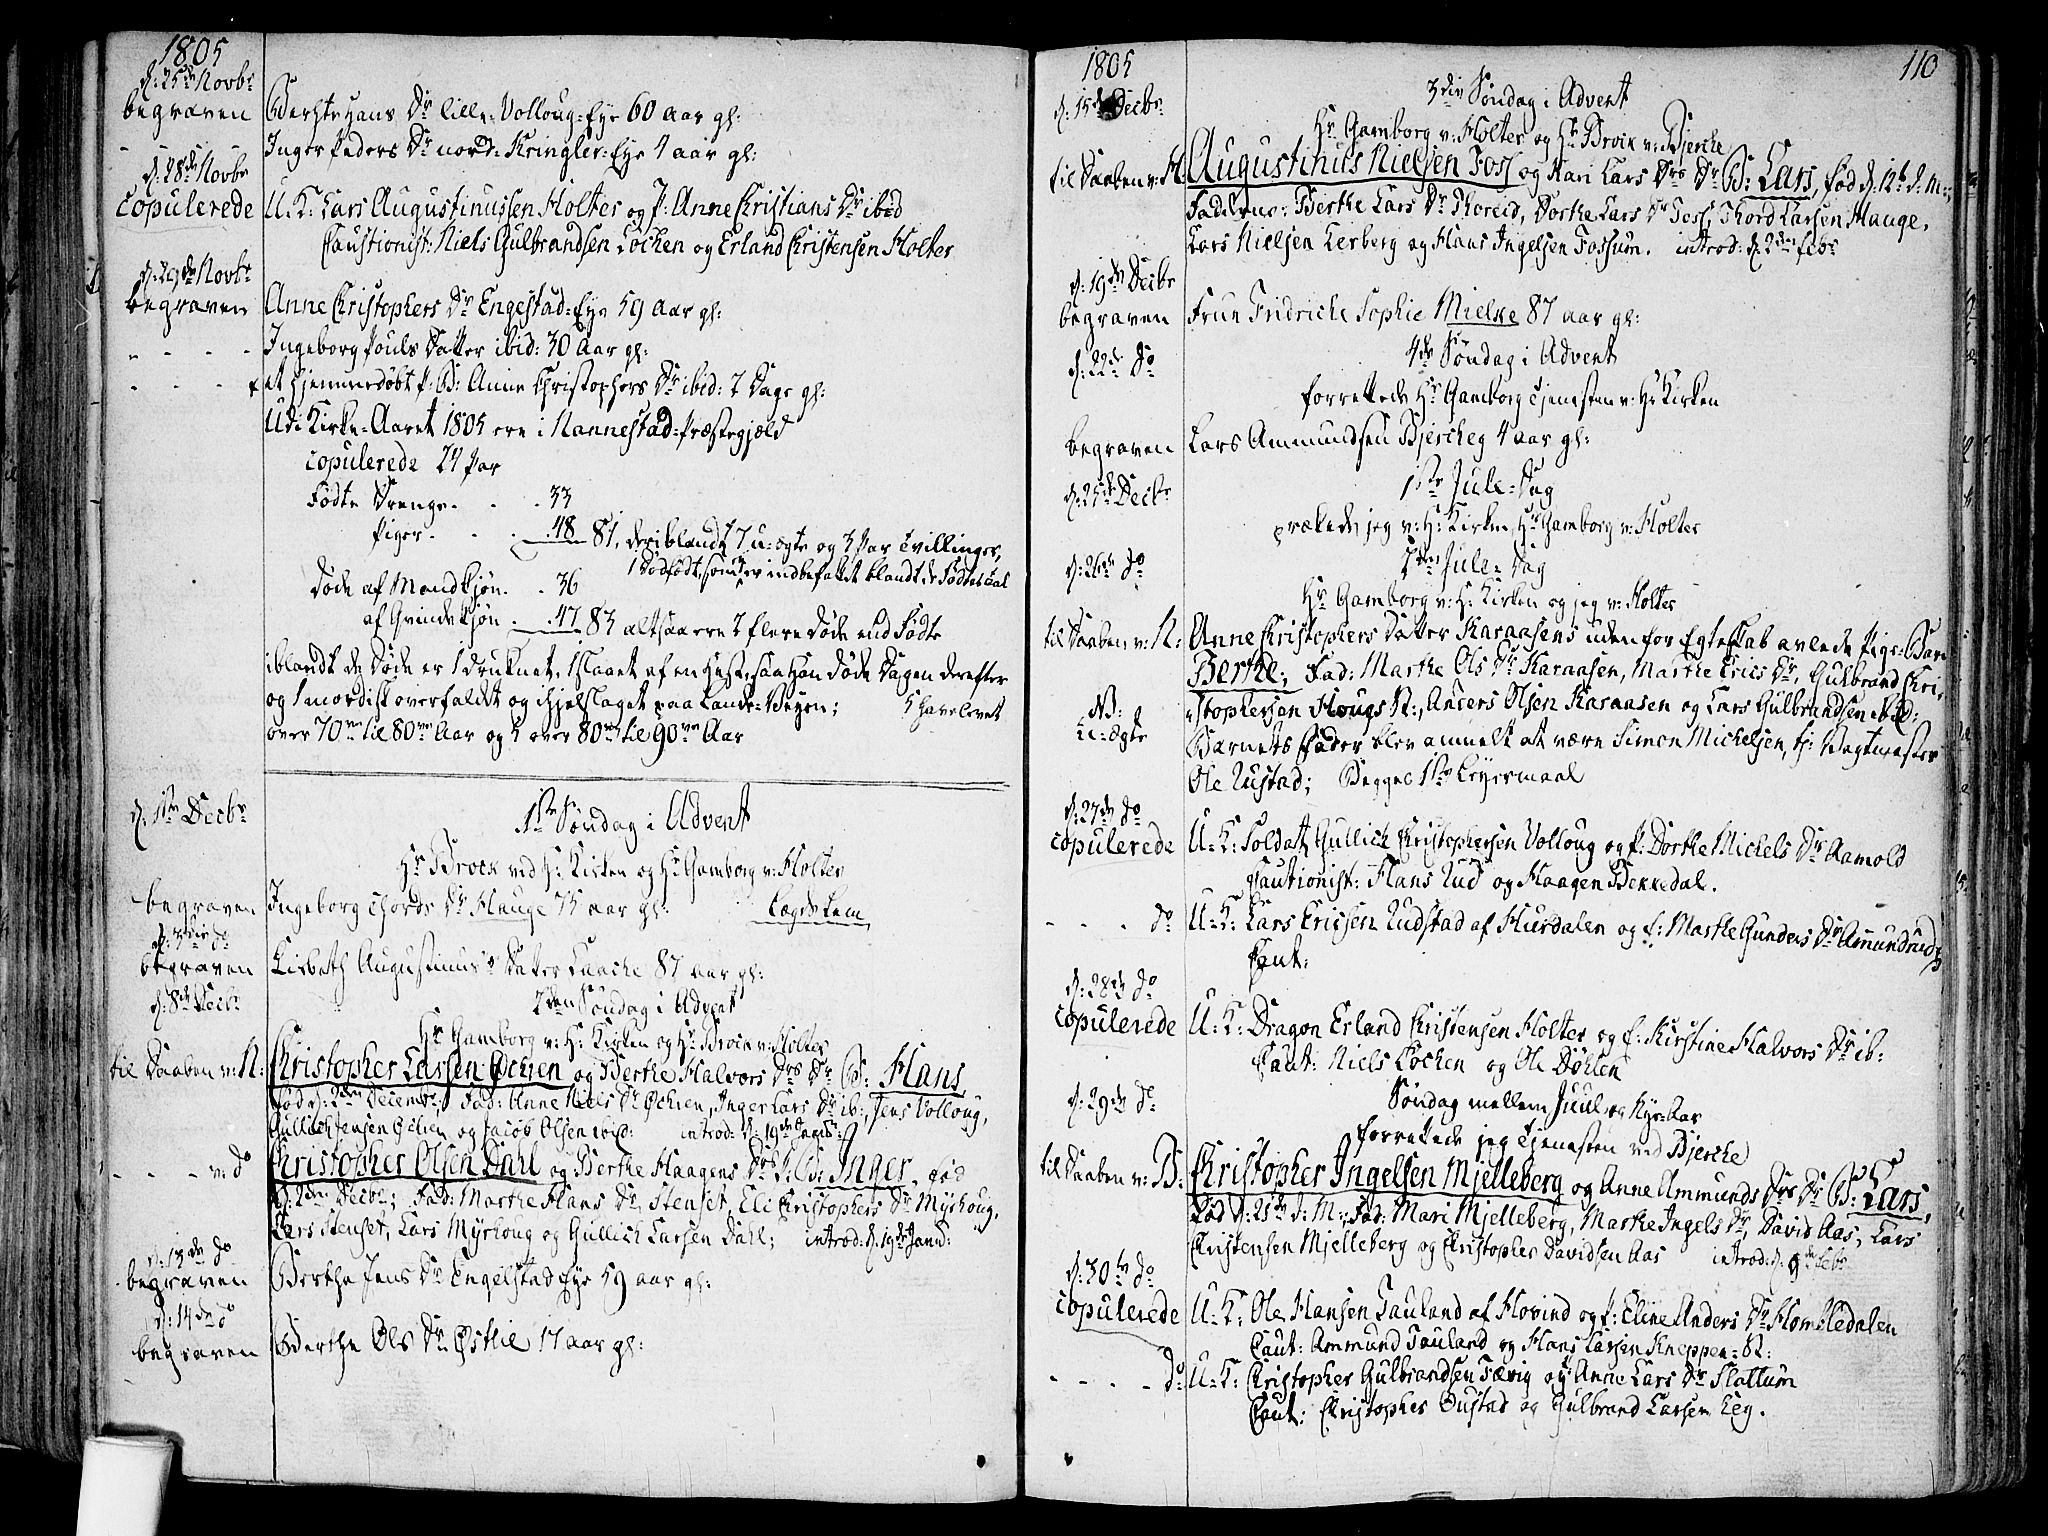 1805
d: 25de Novbr
begraven Berthe Hans Dr lille-Volloug-Eye 60 aar gl:
Inger Peders Dr nord-Kringler-Eye 4 aar gl:
d: 28de Novbr
copulerede U:K: Lars Augustinussen Holter og P: Anne Christians Dr ibid
Cautionist: Niels Gulbrandsen Løchen og Erland Christensen Holter
d: 29de Novbr
begraven Anne Christophers Dr Engestad-Eye 59 Aar gl:
- - - - Ingeborg Pouls Datter ibid: 30 Aar gl:
- - - - et hjemmedøbt P: B: Anne Christophers Dr ibid: 2 Dage gl:
Udi Kirke-Aaret 1805 ere i Nannestad-Præstegjæld
copulerede 24 Par
Fødte Drenge. . . 33
Piger. . . 48 81, deriblandt 7 u-ægte og 3 Par Tvillinger,
1 Dødfødt, som er indbefattet blandt de Fødtes Tal
Døde af Mandkjøn. . 36
af Qvindekjøn . . 47 83 altsaa ere 2 flere Døde end Fødte
iblandt de Døde er 1 druknet, 1 slaaet af en Hest, saa han døde Dagen derefter
og 1 mordisk overfaldet og ihjelslaget paa Lande-Veyen; 5 have levet
over 70ve til 80ve Aar og 3 over 80ve til 90ve Aar
d: 1ste Decbr 1ste Søndag i Advent
Hr Brock ved H: Kirken og Hr Gamborg v: Holter
begraven Ingeborg Thords Dr Hauge 75 aar gl: Lægds Lem
d: 3die do
begraven Lisbeth Augustinus Datter Laache 87 aar gl:
d: 8de Decbr 2den Søndag i Advent
Hr Gamborg v: H: Kirken og Hr Brock v: Holter
til Daaben v: N: Christopher Larsen Øchjen og Berthe Halvors Drs Dr B: Hans
fød d: 2den Decembr; Fad: Anne Niels Dr Øchjen, Inger Lars Dr ib:, Jens Volloug,
Gullich Jensen Gilien og Jacob Olsen ibid: introd: d: 19de Janr
- - - - v: do Christopher Olsen Dahl og Berthe Haagens Drs P: B: Inger, fød
d: 2den Decbr; Fad: Marthe Hans Dr Stenset, Eli Christophers Dr Myhoug,
Lars Stenset, Lars Myrhoug og Gullich Larsen Dahl; introd: d: 19de Janr:
d: 13de do
begraven Berthe Jens Dr Engelstad Eye 59 aar gl:
d: 14de do
begraven Berthe Ols Dr Østlie 17 aar gl:
1805 110
d: 15de Decbr 3die Søndag i Advent
Hr Gamborg v: Holter og Hr Brock v: Bjerche
til Daaben v: H: Augustinus Nielsen Foss og Kari Lars Drs Dr B: Lars, fød d: 12te d: M:,
Fadderne: Berthe Lars Dr Thoreid, Dorthe Lars Dr Foss, Thord Larsen Hauge,
Lars Nielsen Lerberg og Hans Ingelsen Fossum. introd: d: 2den Febr
d: 19de Decbr
begraven Frue Fridriche Sophie Mielke 87 aar gl:
d: 22de do 4de Søndag i Advent
forrettede Hr Gamborg Tjenesten v: H: Kirken
begraven Lars Ammundsen Bjercheg 4 aar gl:
d: 25de Decbr 1ste Jule-Dag
prækede jeg v: H: Kirken, Hr Gamborg v: Holter
d: 26de do 2den Jule-Dag
Hr Gamborg v: H: Kirken og jeg v: Holter
til Daaben v: N: Anne Christophers Datter Karaasens uden for Egteskab avlede Pige-Barn
Berthe; Fad: Marthe Ols Dr Karaasen, Marthe Erics Dr, Gulbrand Chri-
NB: stophersen Hougs R:, Anders Olsen Karaasen og Lars Gulbrandsen ibid:
U-ægte Barnets Fader blev anmeldt at være Simon Michelsen, tj: Vagtmester
Ole Rustad; Begges 1ste Leyermaal
d: 27de do
copulerede U:K: Soldat Gullich Christophersen Volloug og P: Dorthe Michels Dr Aamold
Cautionist: Hans Rud og Haagen Bekkedal.
- - - - do U:K: Lars Ericsen Rudstad af Hurdalen og E: Marthe Gunders Dr Amundrud
Caut:
d: 28de do
copulerede U:K: Dragon Erland Christensen Holter og E: Kirstine Halvors Dr ib:
Caut: Niels Løchen og Ole Døhlen
d: 29de do Søndag mellem Juul og Nyt-Aar
forrettede jeg Tjenesten ved Bjerche
til Daaben v: B: Christopher Ingelsen Mjelleberg og Anne Ammunds Drs Dr B: Lars,
fød d: 25de d: M:, Fad: Mari Mjelleberg, Marthe Ingels Dr, David Aas, Lars
Christensen Mjelleberg og Christopher Davidsen Aas introd: d: 9de Febr
d: 30te do
copulerede U:K: Ole Hansen Tauland af Hovind og P: Eline Anders Dr Homledalen
Caut: Ammund Tauland og Hans Larsen Kneppen-R:
- - - - do U:K: Christopher Gulbrandsen Tævig og Anne Lars Dr Slattum
Caut: Christopher Bustad og Gulbrand Larsen Leg.